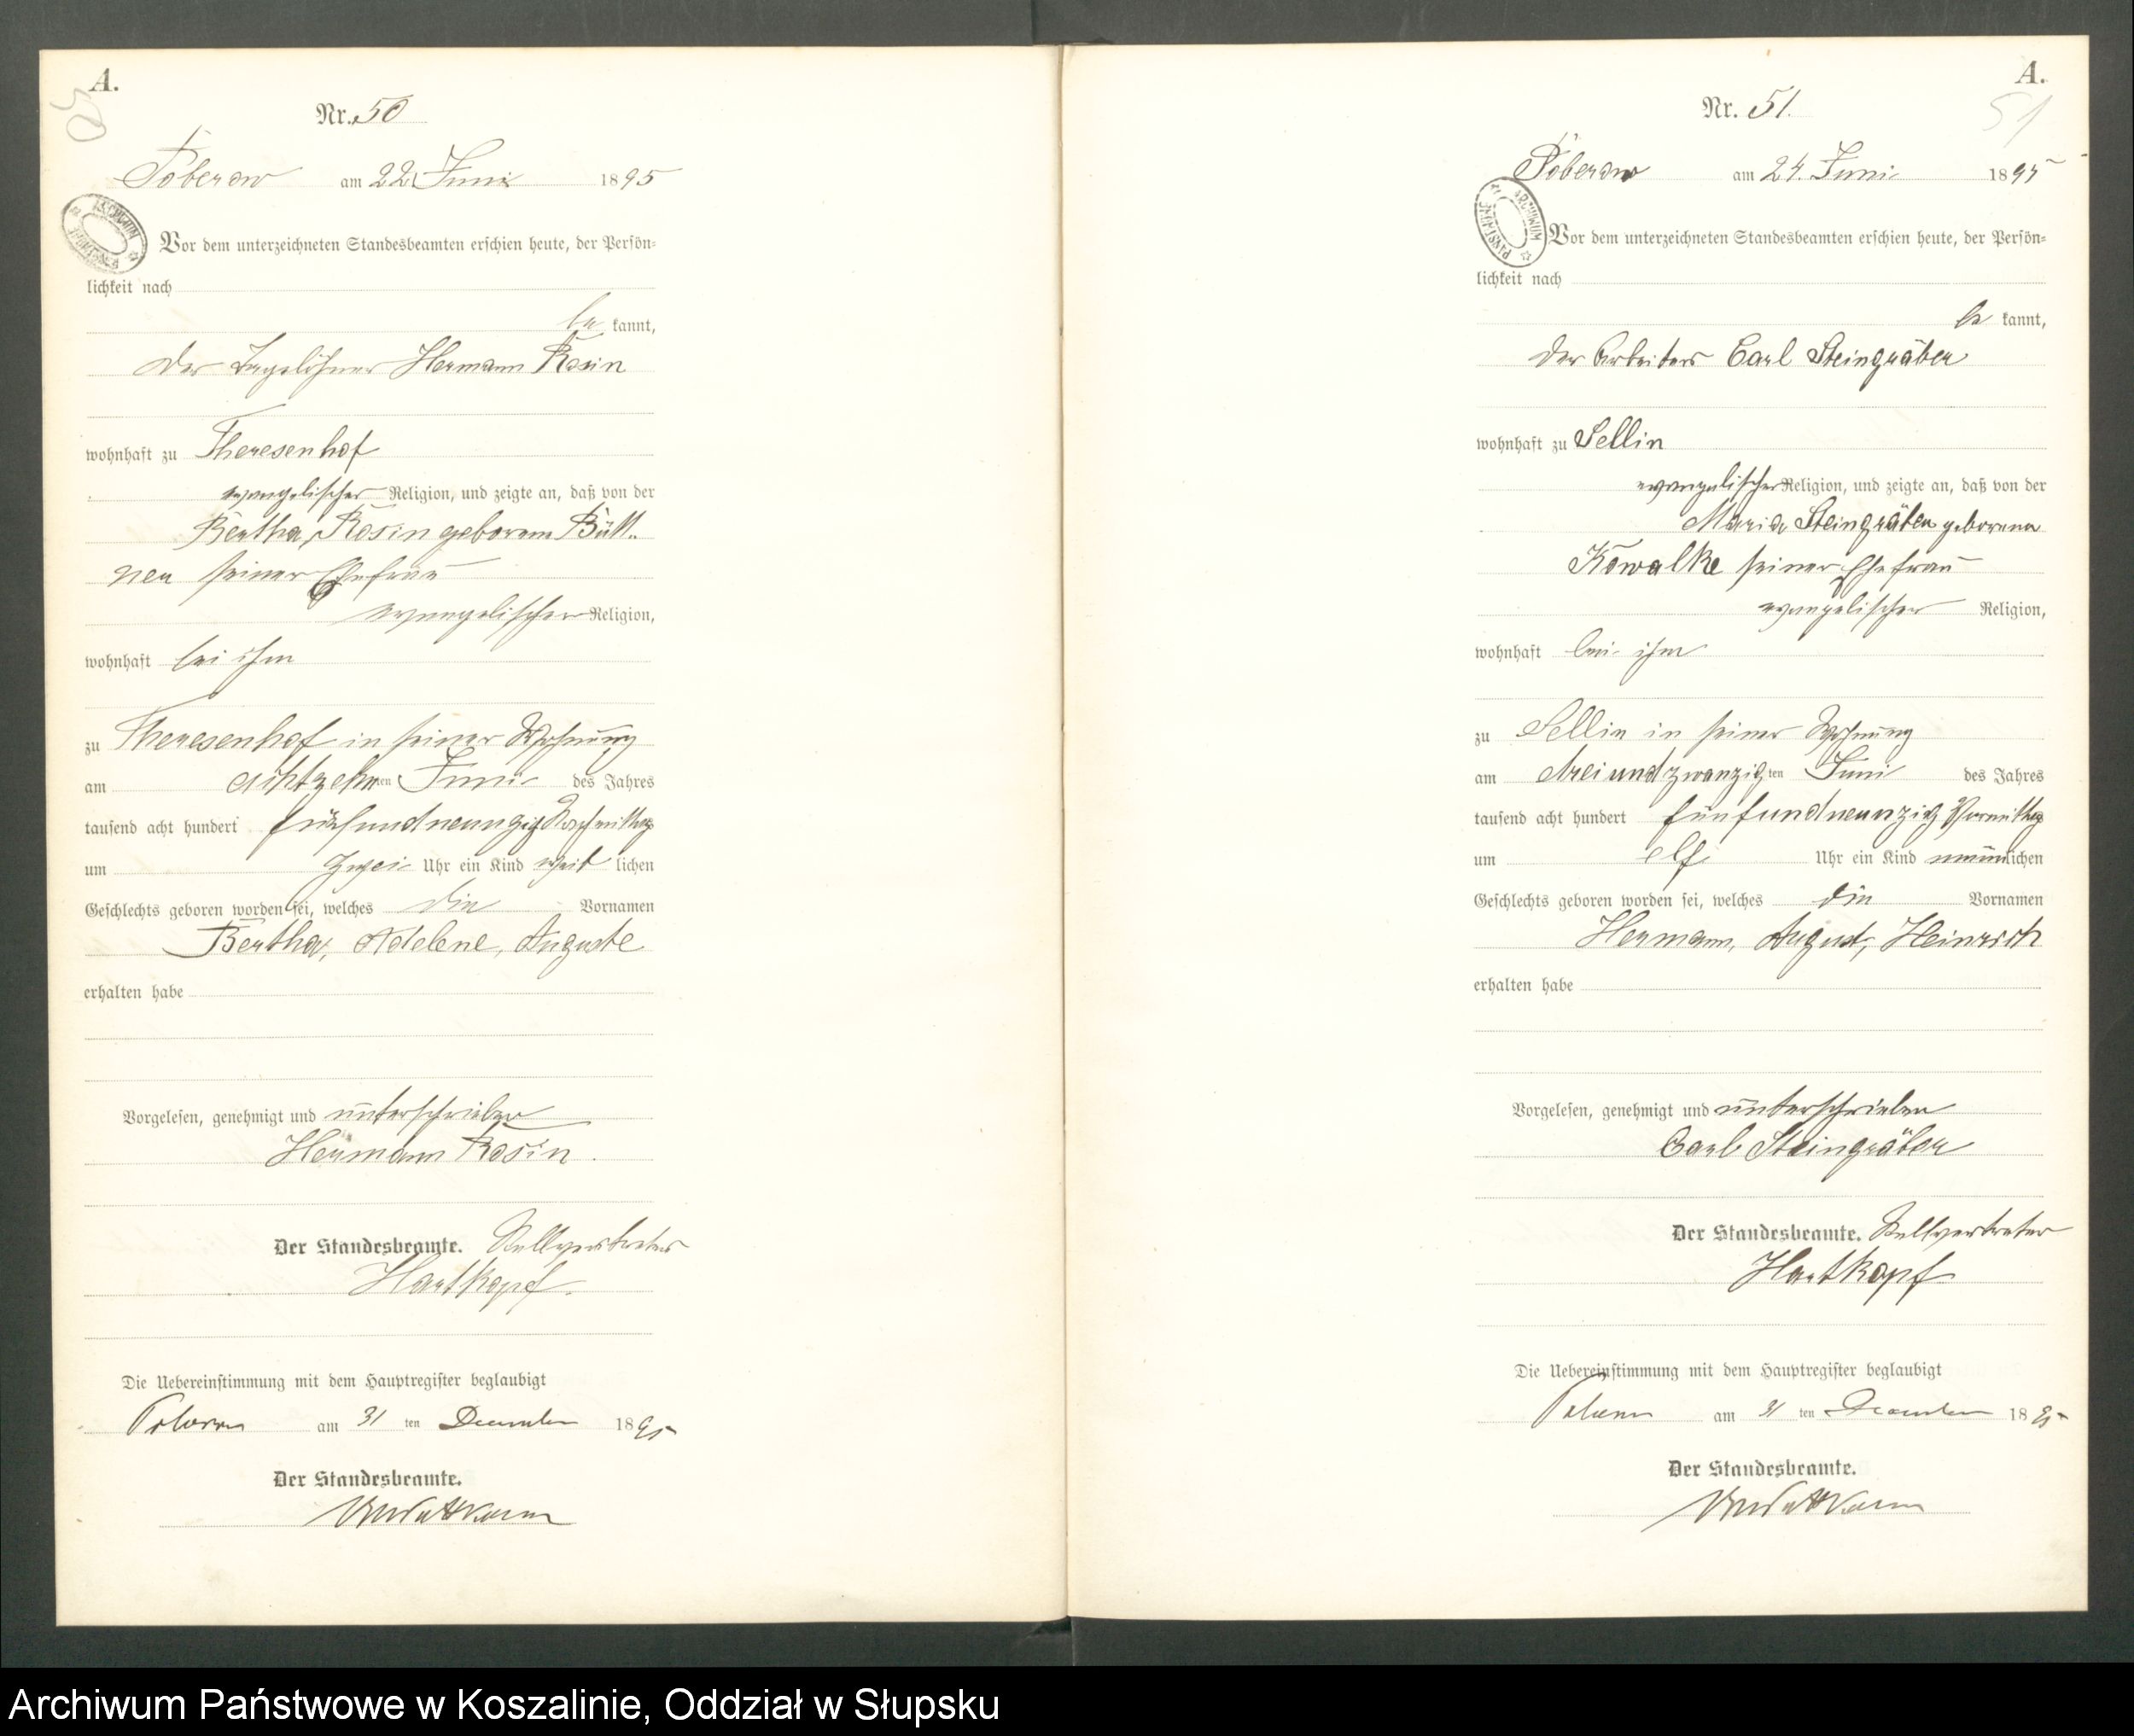 A.
50
Nr. 50
Poberow am 22. Juni 1895
ARCHIWUM PAŃSTWOWE
Vor dem unterzeichneten Standesbeamten erschien heute, der Persön=
lichkeit nach
be kannt,
der Tagelöhner Hermann Rosin
wohnhaft zu Theresenhof
evangelischer Religion, und zeigte an, daß von der
Bertha Rosin geborenen Bütt-
ner seiner Ehefrau
evangelischer Religion,
wohnhaft bei ihm
zu Theresenhof in seiner Wohnung
am achtzehnten Juni des Jahres
tausend acht hundert fünfundneunzig Nachmittags
um zwei Uhr ein Kind weib lichen
Geschlechts geboren worden sei, welches die Vornamen
Bertha, Adelene, Auguste
erhalten habe
Vorgelesen, genehmigt und unterschrieben
Hermann Rosin.
Der Standesbeamte. Stellvertreter
Hartkopf.
Die Uebereinstimmung mit dem Hauptregister beglaubigt
Poberow am 31 ten December 1895
Der Standesbeamte.
A.
51
Nr. 51.
Poberow am 24. Juni 1895
ARCHIWUM PAŃSTWOWE
Vor dem unterzeichneten Standesbeamten erschien heute, der Persön=
lichkeit nach
be kannt,
der Arbeiter Carl Steingräber
wohnhaft zu Sellin
evangelischer Religion, und zeigte an, daß von der
Maria Steingräber geborenen
Kowalke seiner Ehefrau
evangelischer Religion,
wohnhaft bei ihm
zu Sellin in seiner Wohnung
am dreiundzwanzigten Juni des Jahres
tausend acht hundert fünfundneunzig Vormittags
um elf Uhr ein Kind männlichen
Geschlechts geboren worden sei, welches die Vornamen
Hermann, August, Heinrich
erhalten habe
Vorgelesen, genehmigt und unterschrieben
Carl Steingräber
Der Standesbeamte. Stellvertreter
Hartkopf
Die Uebereinstimmung mit dem Hauptregister beglaubigt
Poberow am 31 ten December 1895
Der Standesbeamte.
Archiwum Państwowe w Koszalinie, Oddział w Słupsku